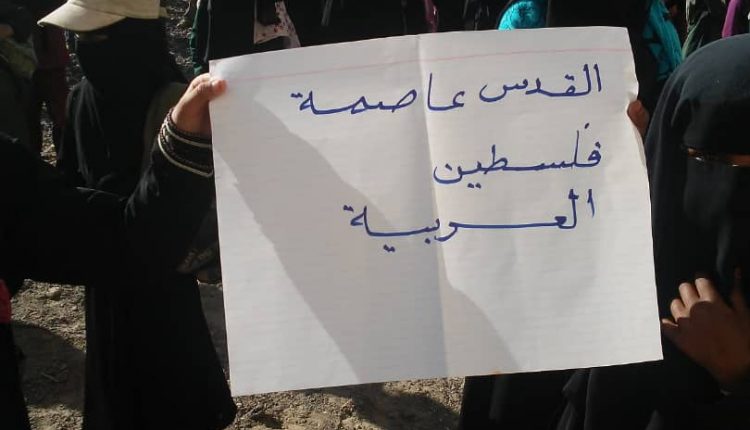 القدس عاصمة
فلسطين
العربية